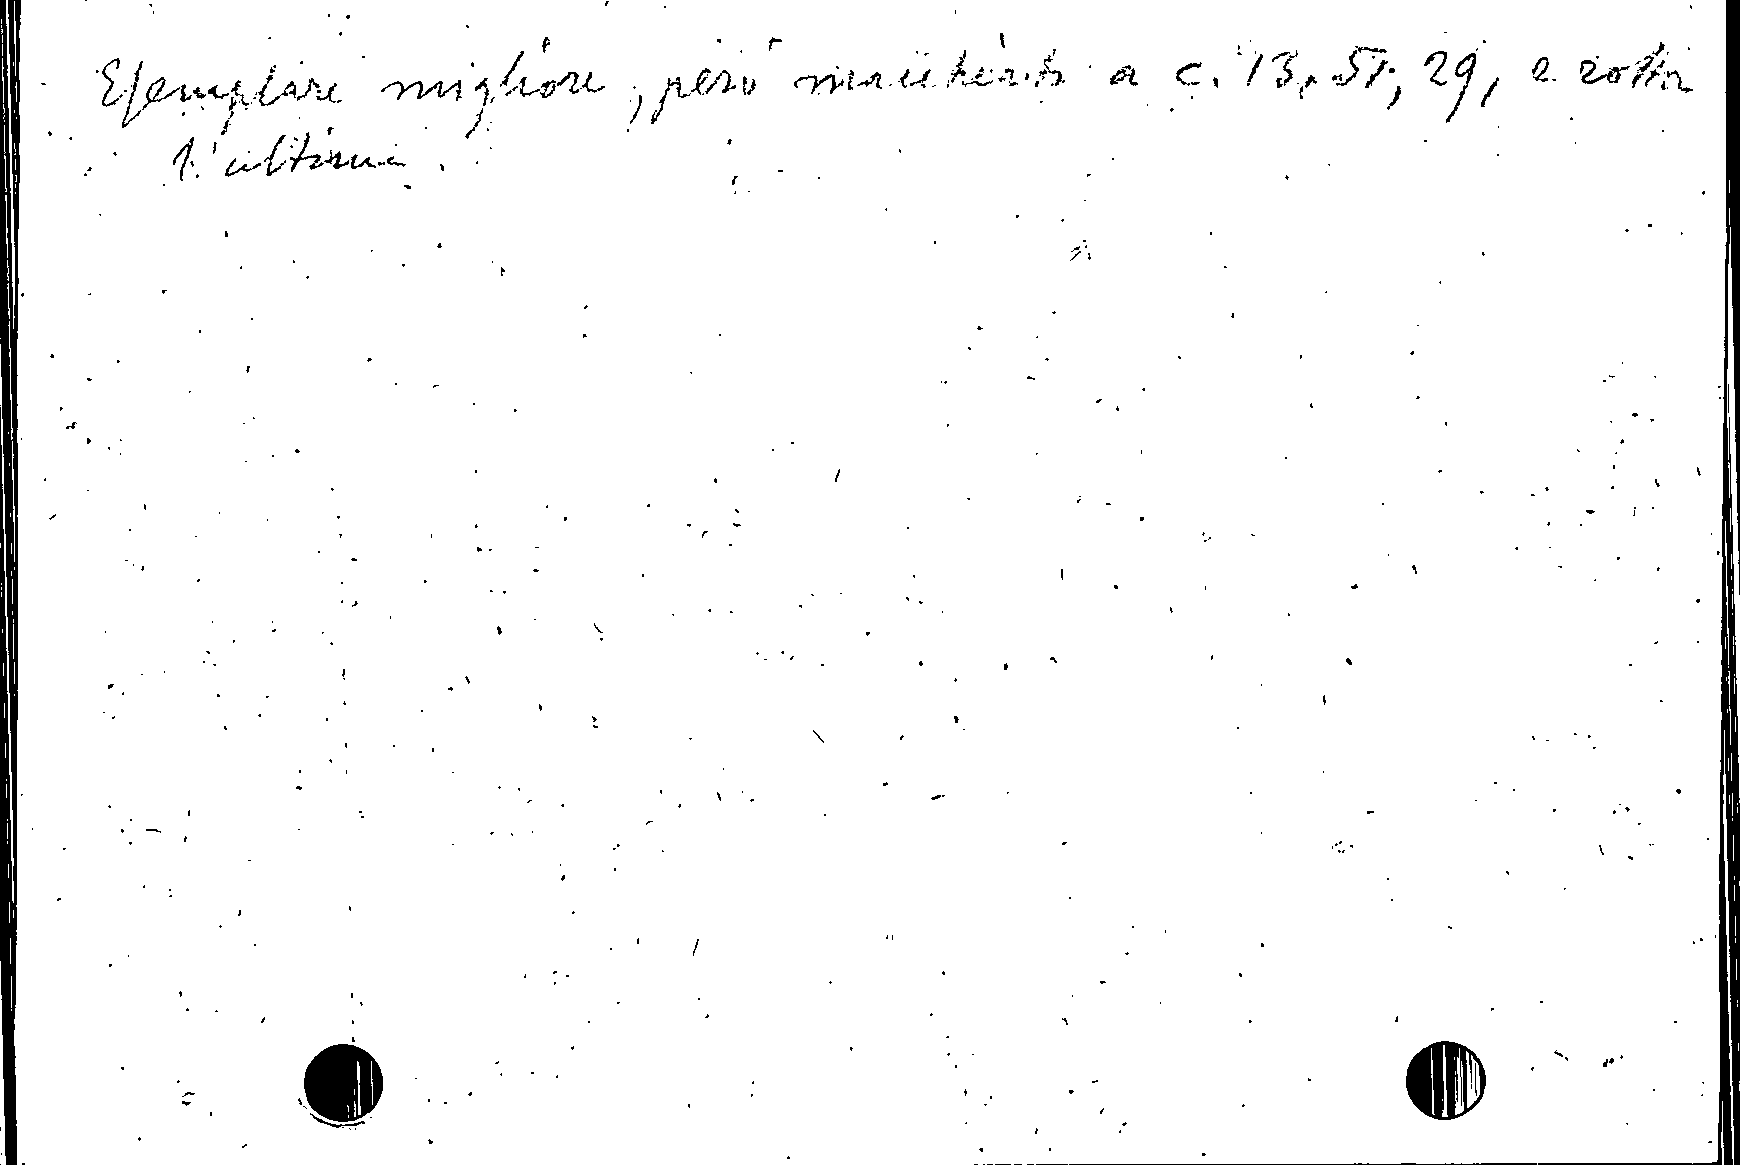 Esemplare migliore, però macchiato a c. 13, 51, 29, e rotta
l'ultima.